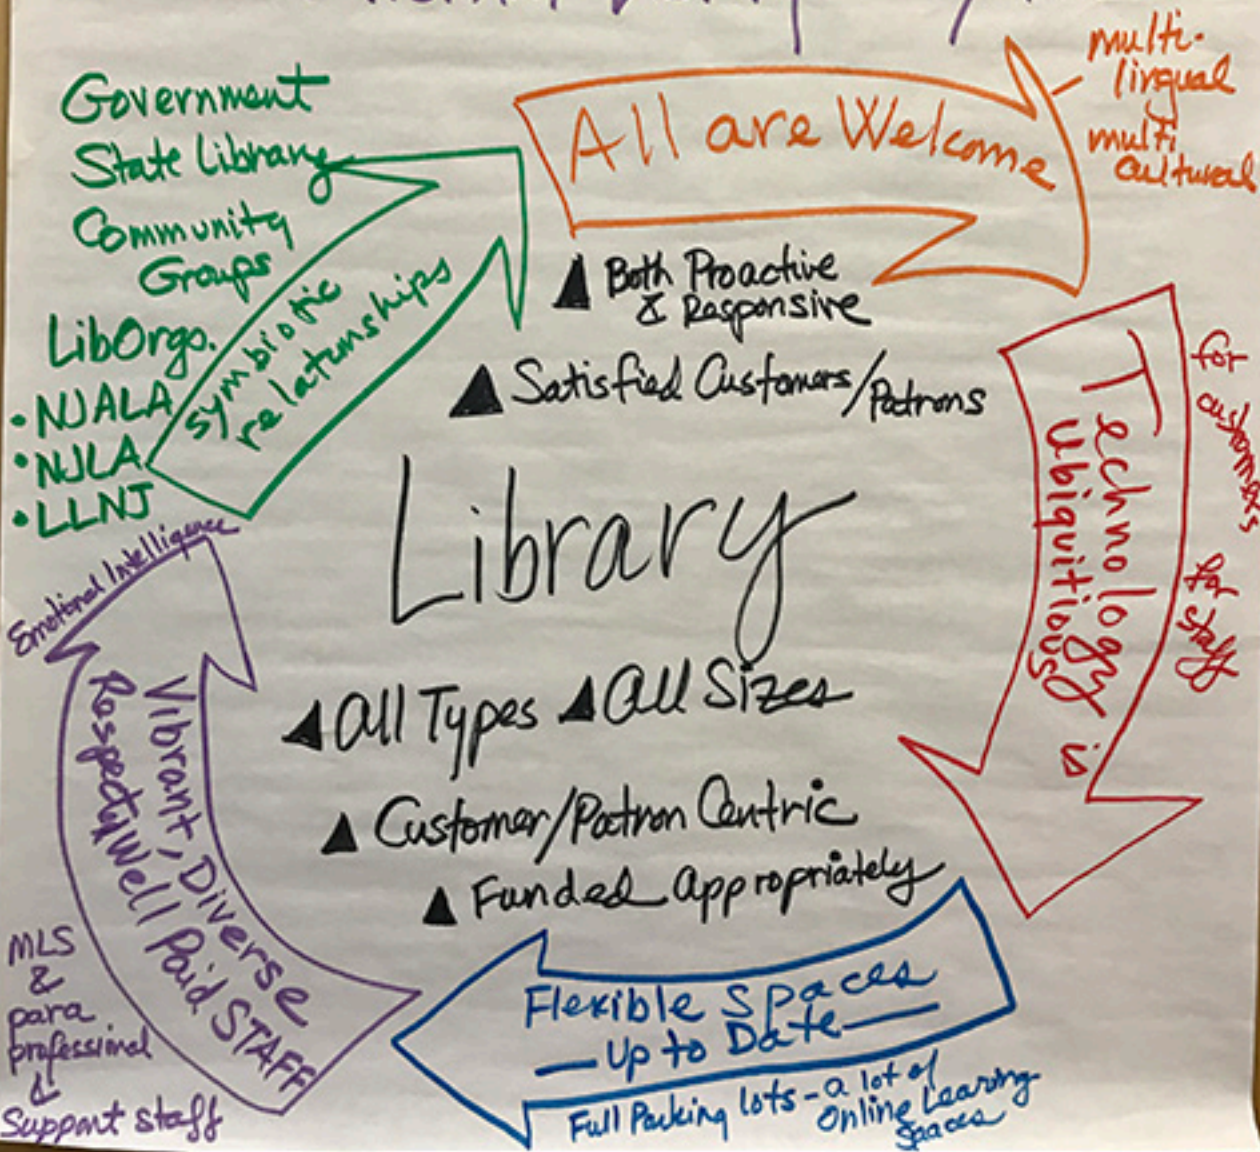 Government
State Library
Community
Groups
LibOrgs.
• NJALA
• NJLA
• LLNJ
Symbiotic
relatumships
All are Welcome
multi-
lingual
multi
cultural
▲ Both Proactive
& Responsive
▲ Satisfied Customers/Patrons
Library
▲ All Types ▲ All Sizes
▲ Customer/Patron Centric
▲ Funded appropriately
Technology is
ubiquitious
for customers
for staff
Flexible Spaces
— Up to Date —
Full Parking lots - a lot of
Online Learning
Spaces
Emotional Intelligence
Vibrant, Diverse
Respected/Well Paid STAFF
MLS
&
para
professional
&
Support staff